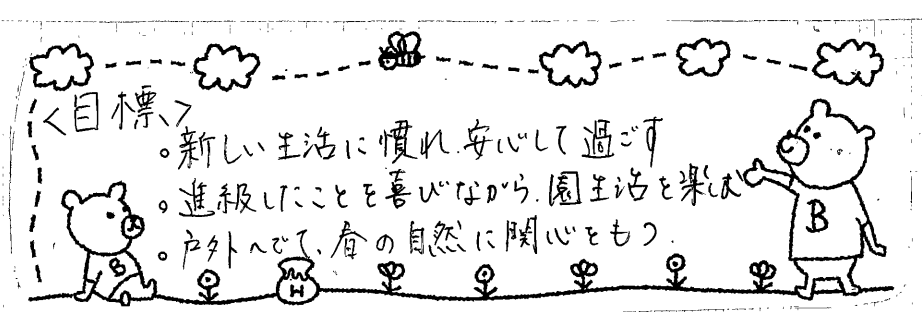 <目標>
。新しい生活に慣れ、安心して過ごす
。進級したことを喜びながら、園生活を楽しむ
。戸外へでて、春の自然に関心をもつ.
B
B
H